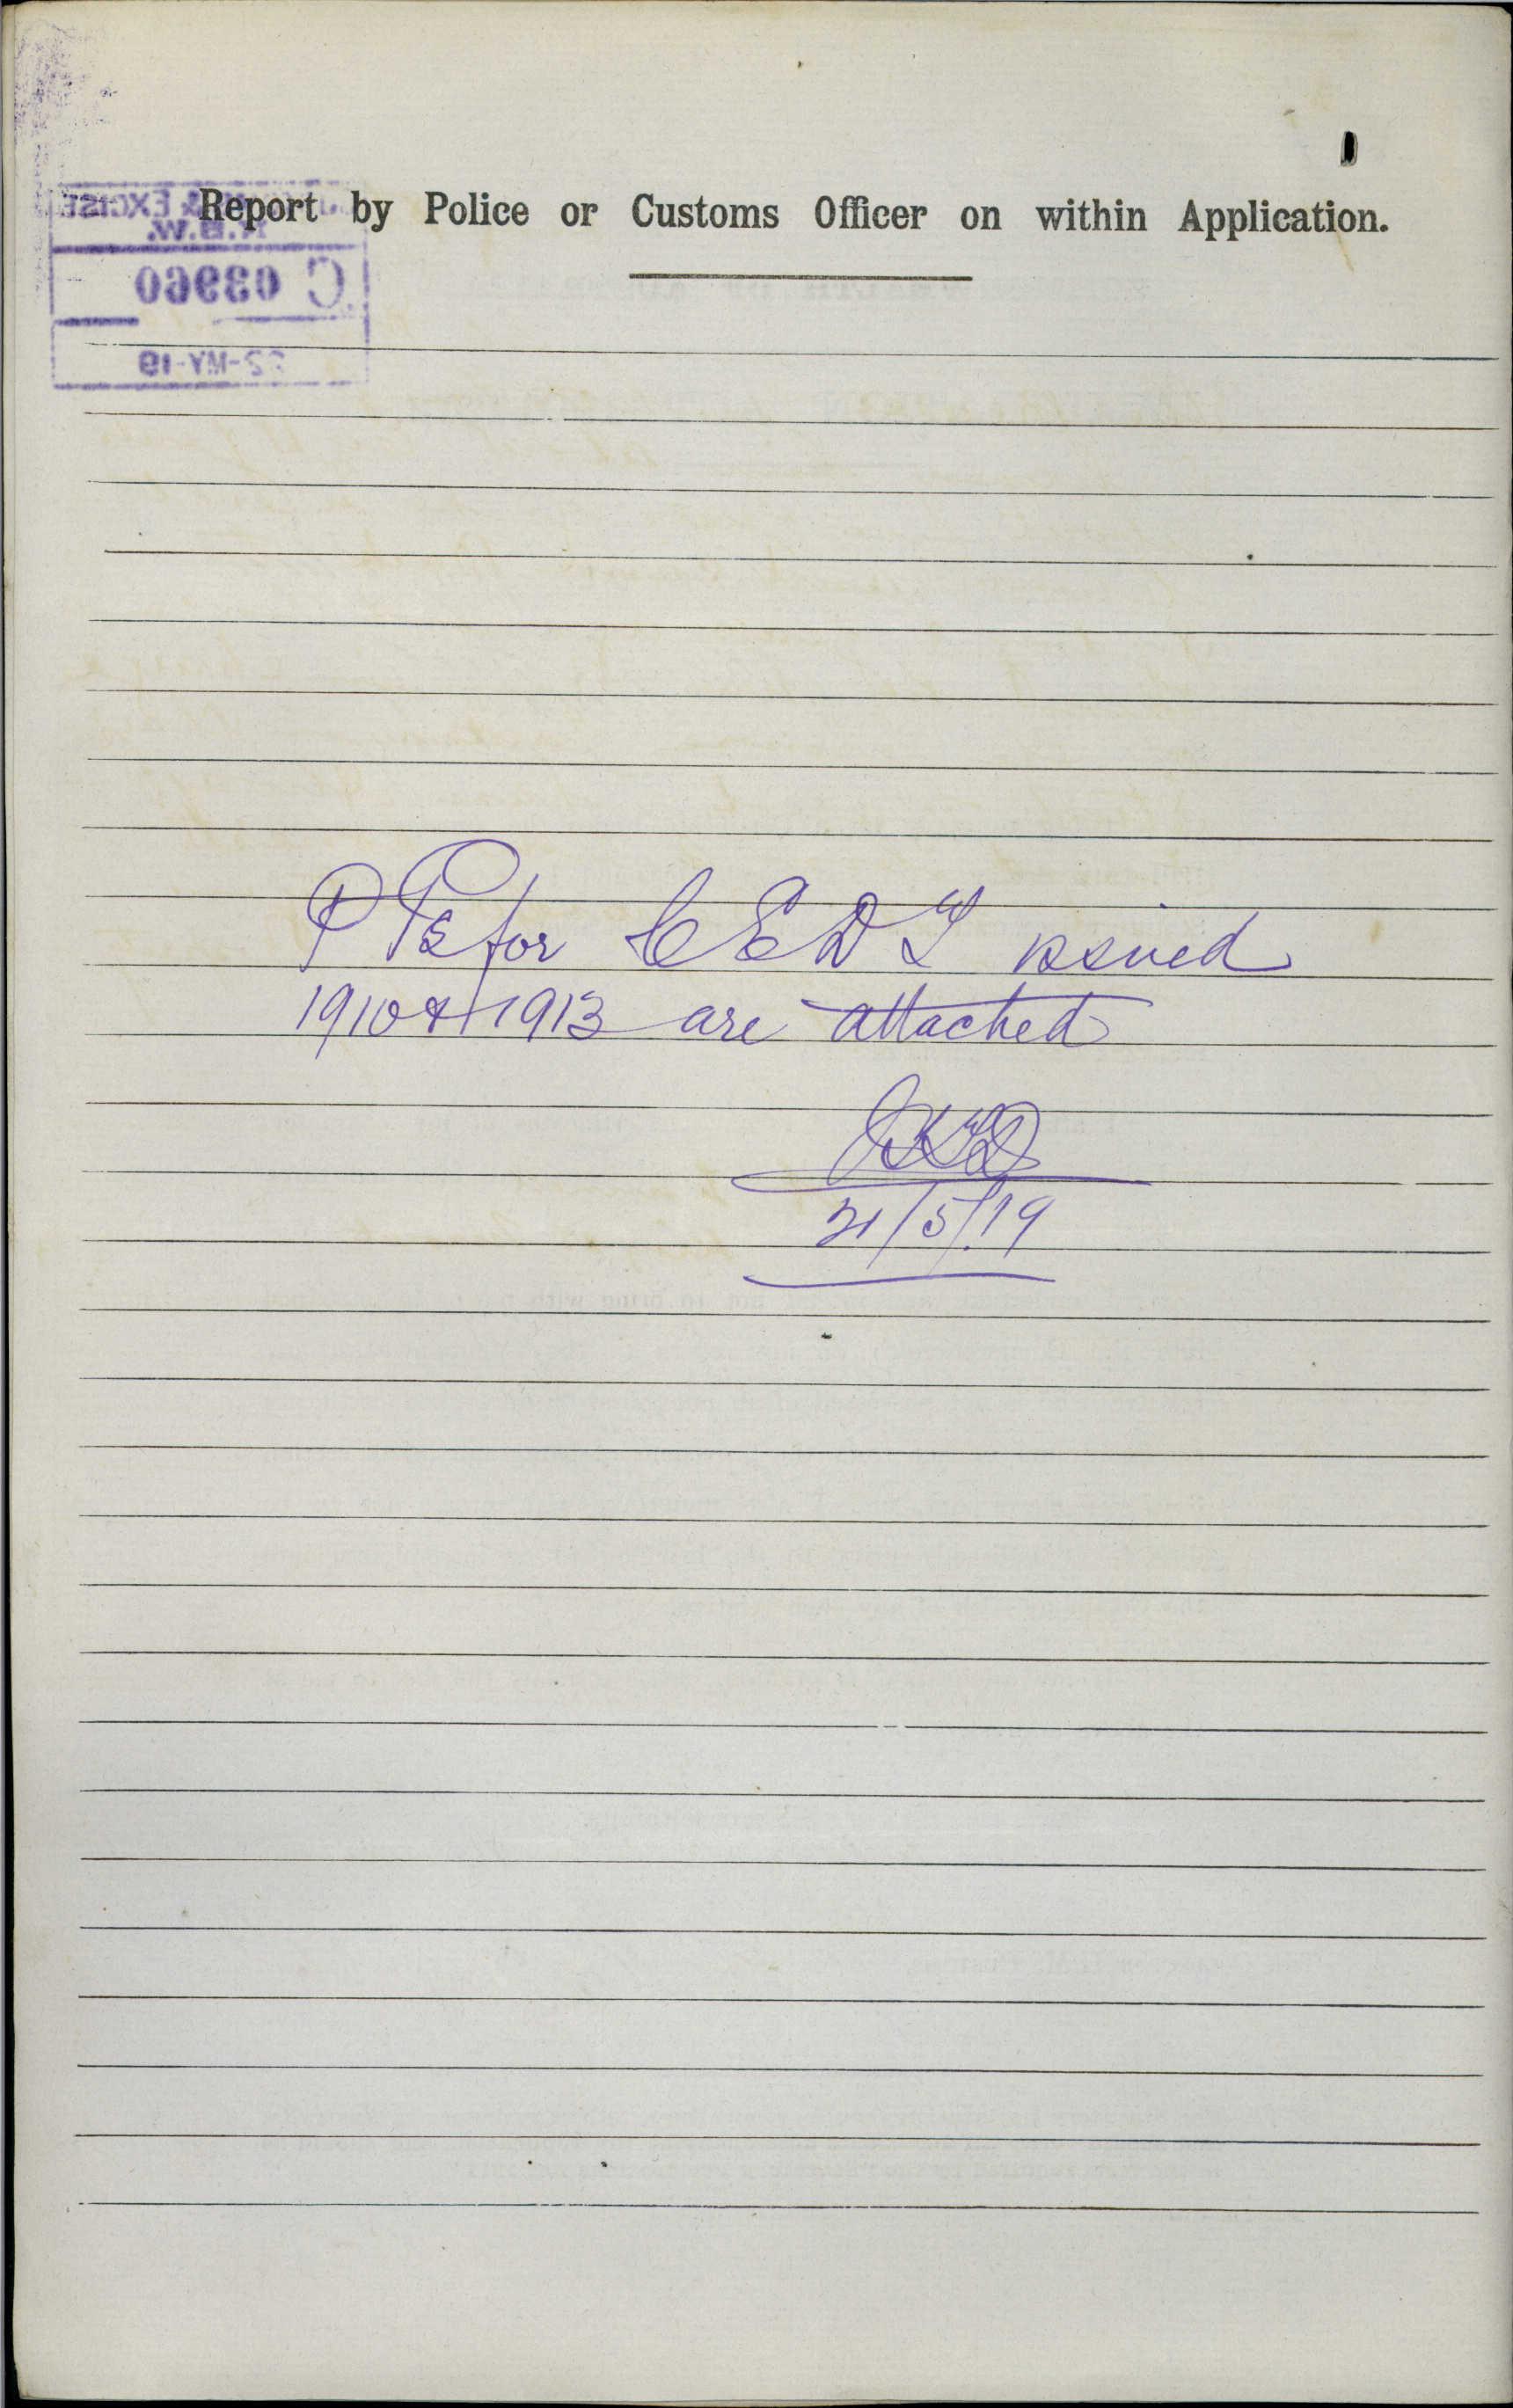 Report by Police or Customs Officer on within Application.
& EXCISE
N.S.W.
C 03960
22-MY-19
for CEDT issued
1910 & 1913 are attached
21/5/19